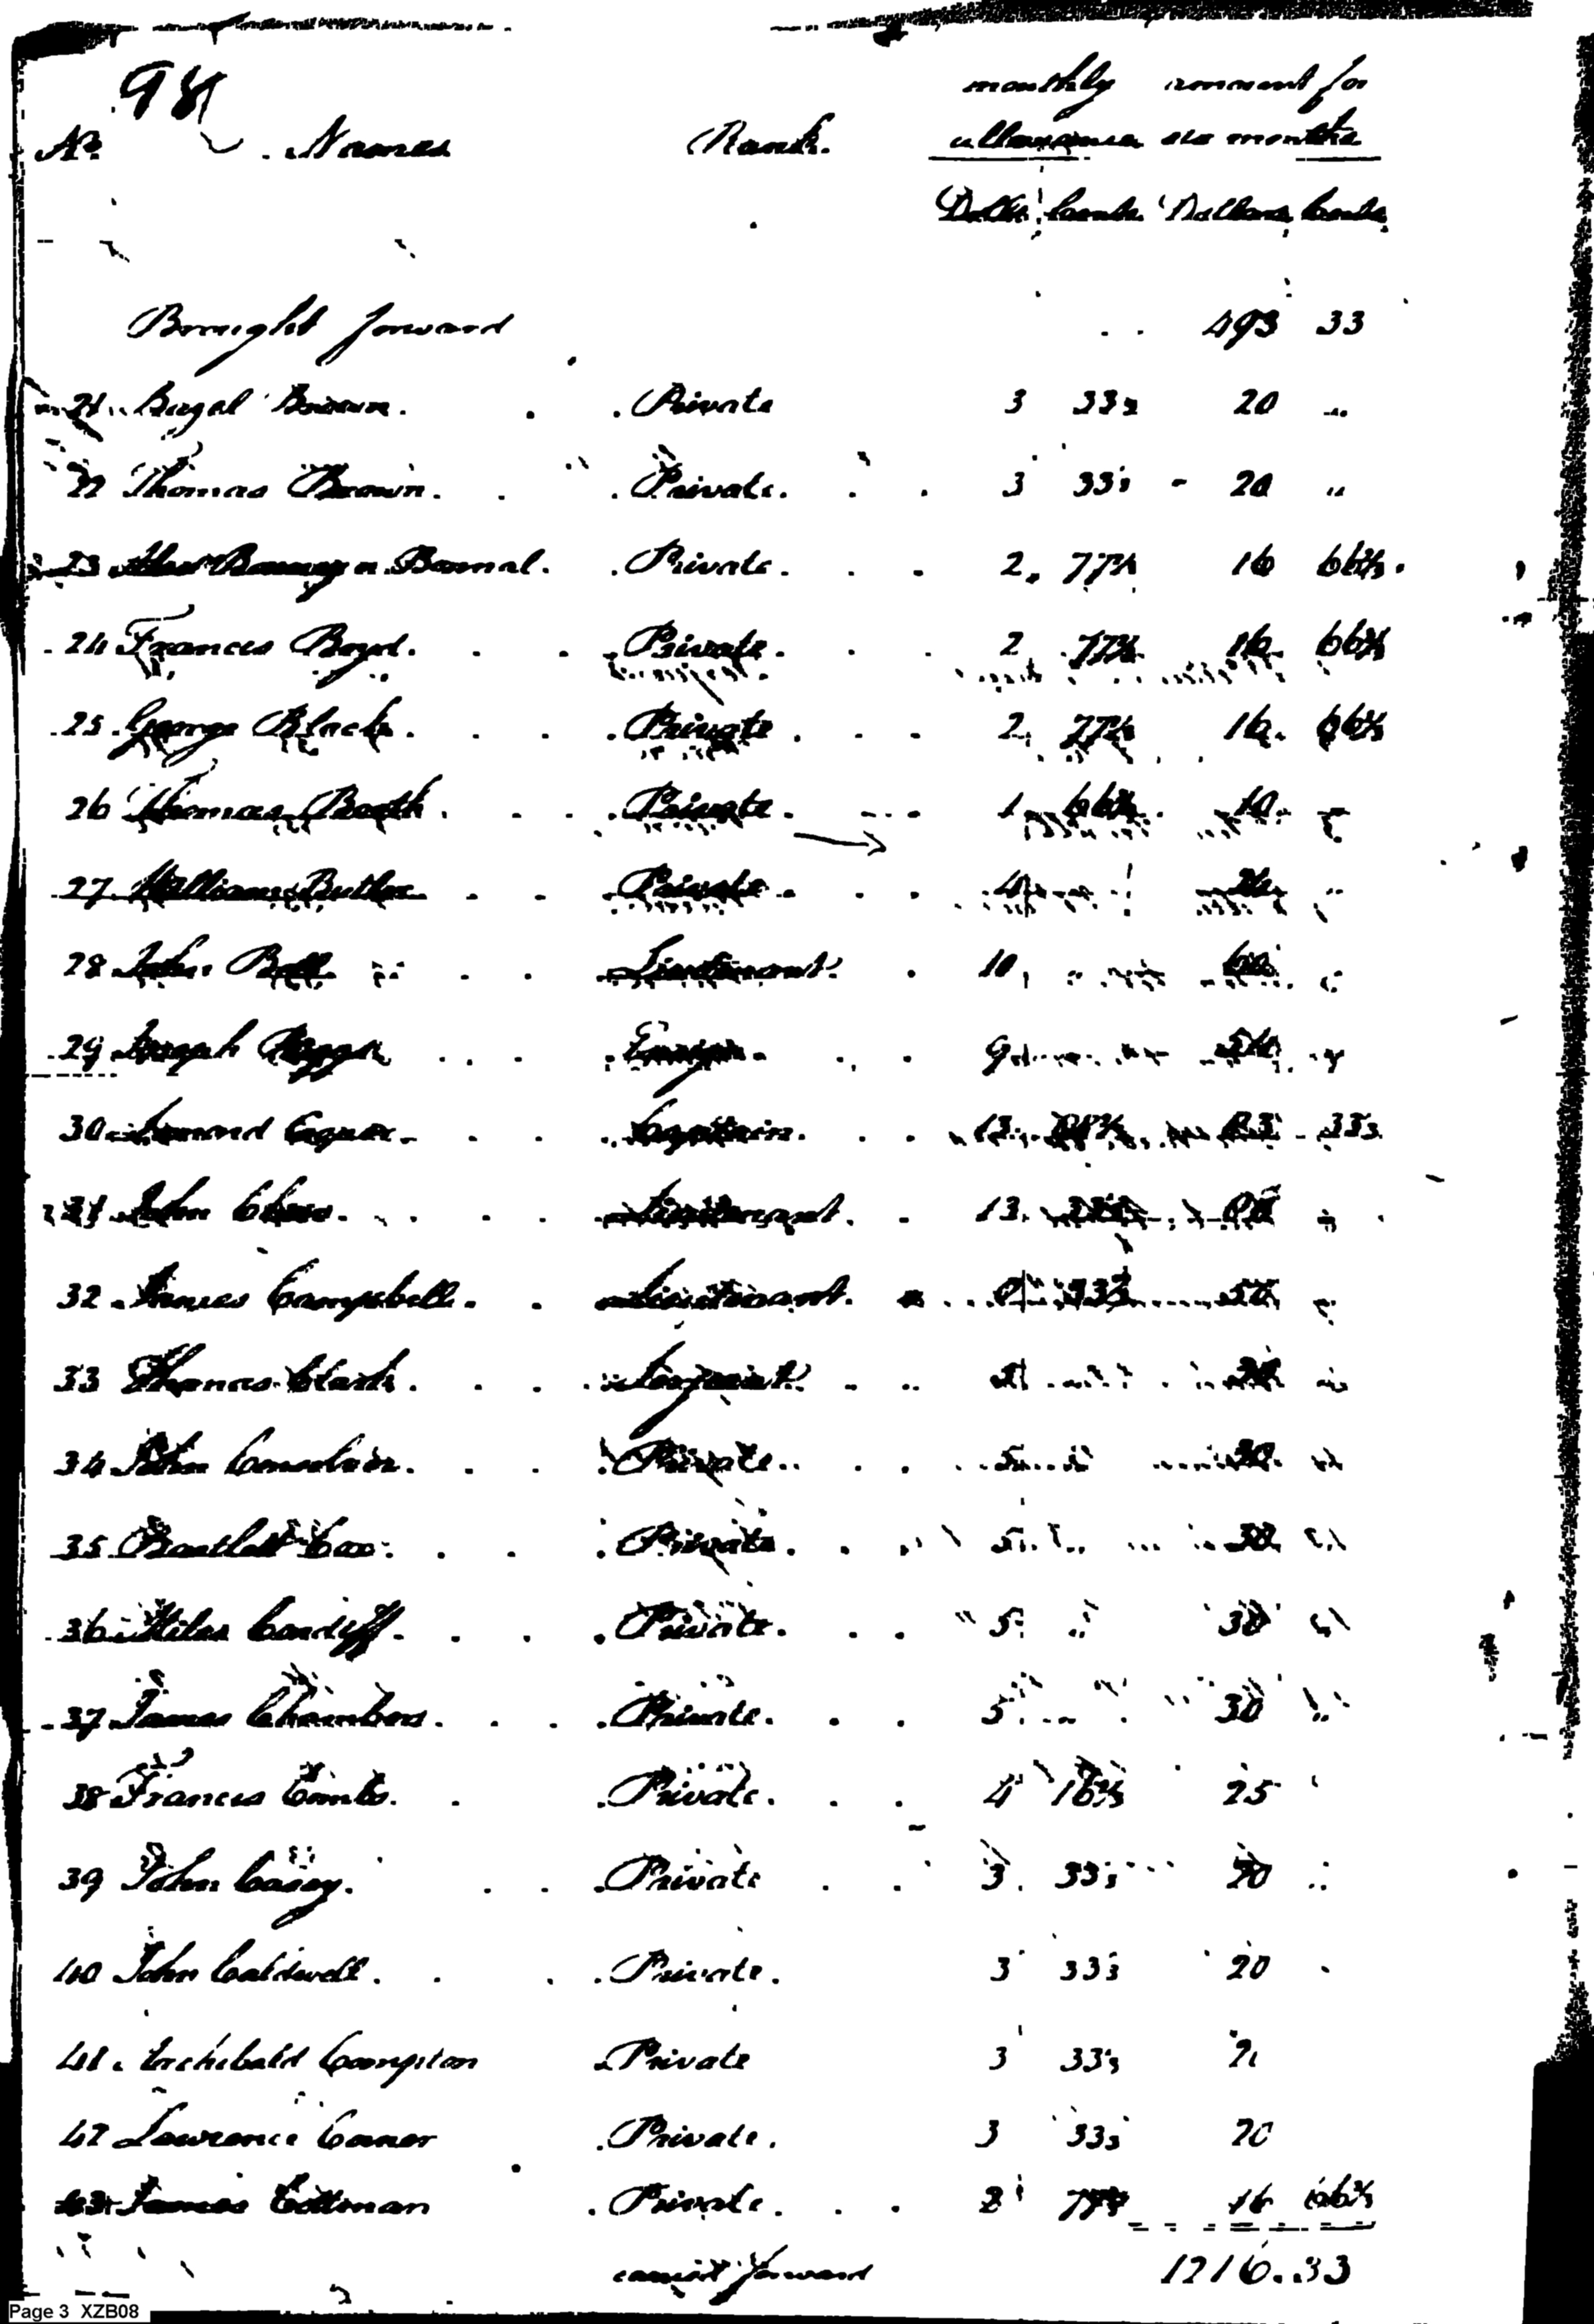 98
monthly amount for
No. Names Rank. allowance six months
Dolls Cents Dollars Cents
Brought forward 493 33
21 Brown. Private 3 33⅓ 20 "
22 Thomas Brown. Private. 3 33⅓ - 20 "
23 Private. 2 77⅞ 16 66⅔.
24 Frances Boyd. Private. 2 77⅞ 16. 66⅔
25. George Black. Private. 2 77⅞ 16. 66⅔
26 Thomas Booth. Private. 1 66⅔ 10.
27. William Butler Private. 4
28 John Bell Lieutenant. 10 60
29 Joseph Ensign. 9 54
30 Captain. 13. 33⅓
31 John Lieutenant. 13.
32 James Campbell. Lieutenant.
33 Thomas Clark. Serjeant. 5 30
34 John Private. 5 30
35. Bartlett Cox. Private. 5 30
36 Miles Cardiff. Private. 5 30
37 James Chambers. Private. 5 30
38 Francis Combs. Private. 4 16⅔ 25
39 John Casey. Private 3. 33⅓ 20
40 John Caldwell. Private. 3 33⅓ 20
41. Archibald Compton Private 3 33⅓ 2
42 Lawrence Conner Private. 3 33⅓ 20
43 James Cottman Private. 2 16 66⅔
carried forward 1216.33
Page 3 XZB08